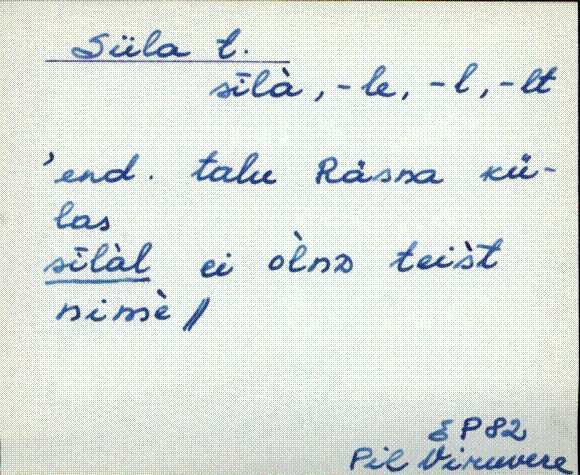 Süla t.
sīlà, -le, -l, -lt
'end. talu Räsna kü-
las
sīlàl ei òlnɒ teist
nimè //
EP82
Pil Viruvere